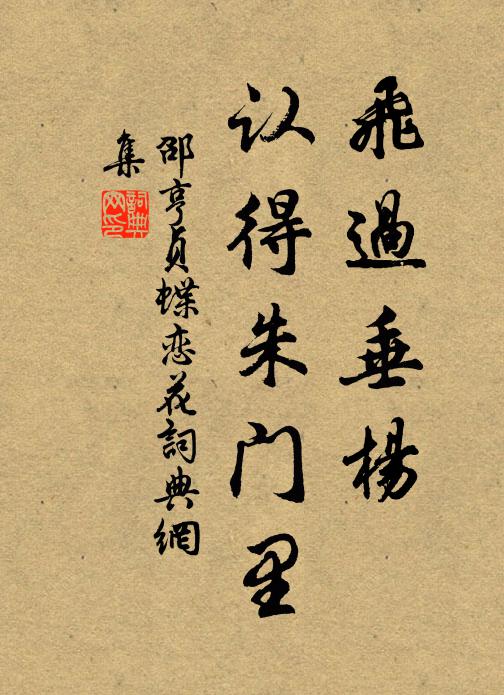 飛過垂楊
认得朱门里
邵亨貞蝶恋花詞典網
集
詞典
网印